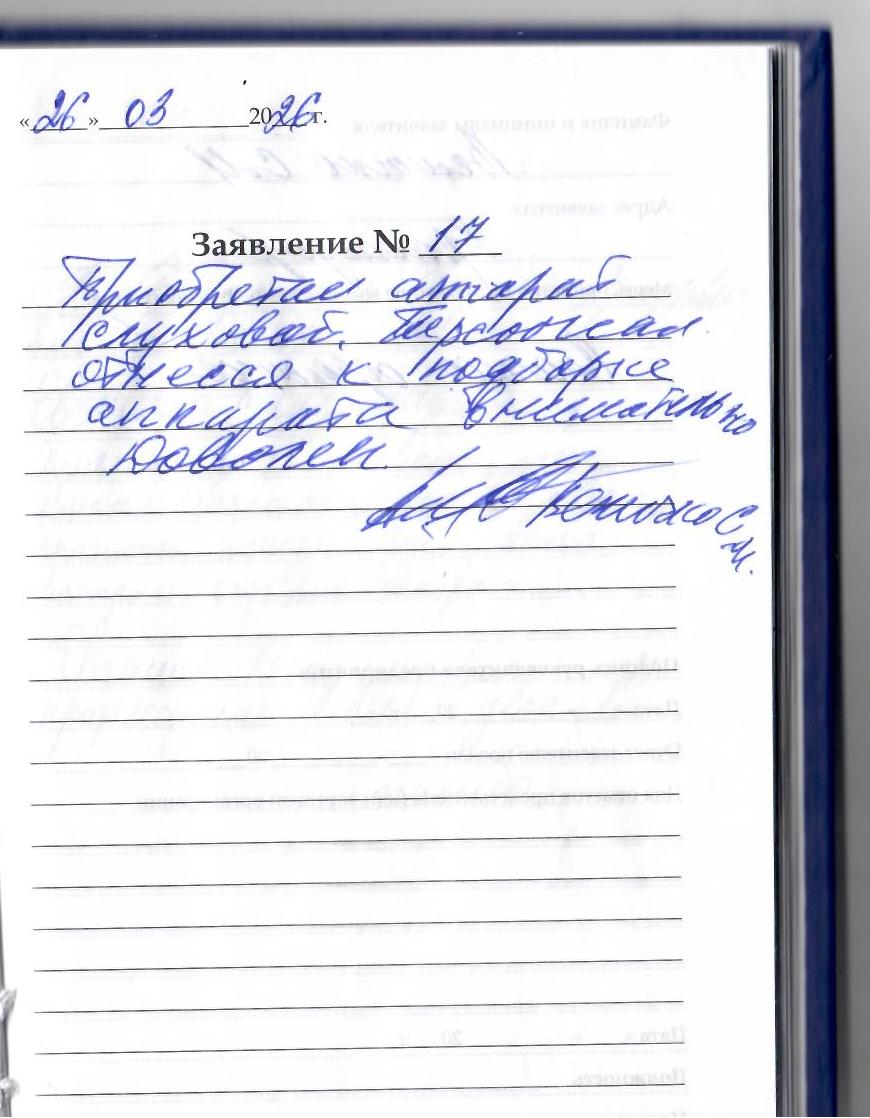 «26» 03 2026г.
Заявление № 17
Приобретал аппарат
слуховой. Персонал
отнесся к подборке
аппарата внимательно
Доволен.
С.И.